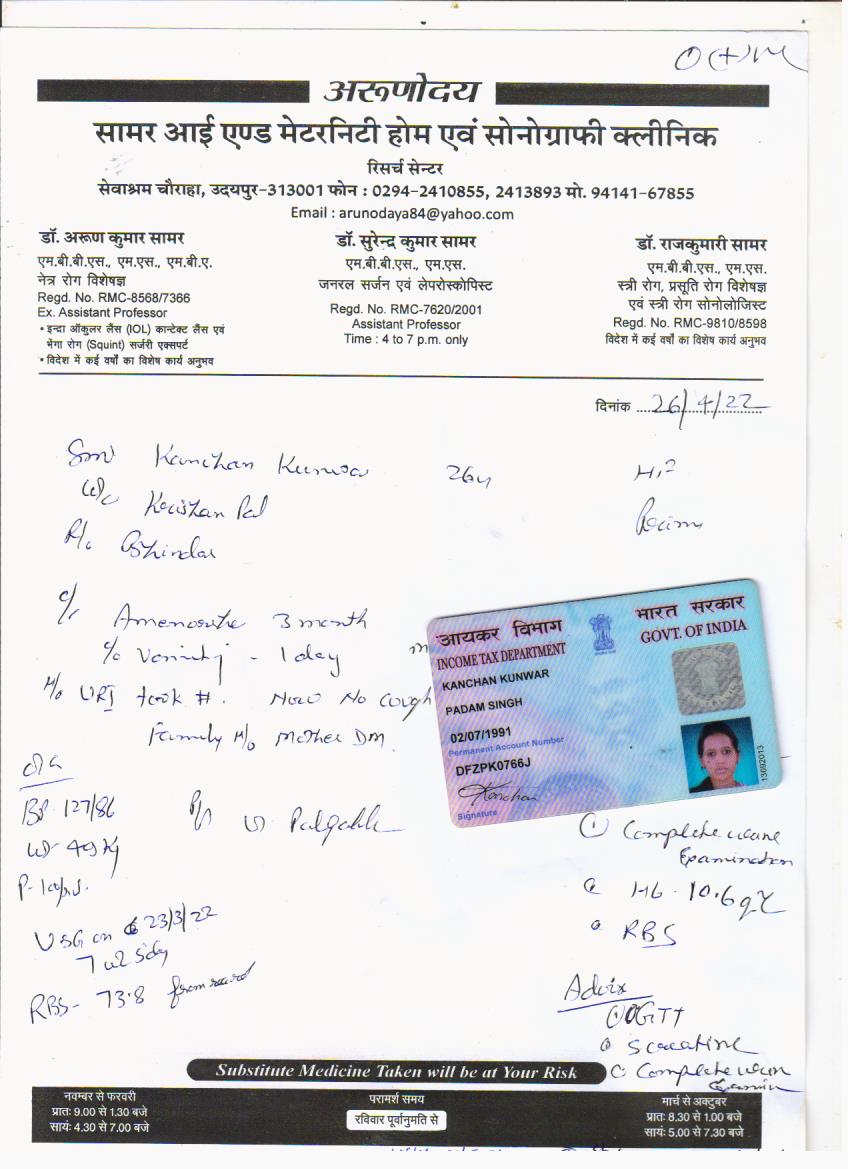 O (+)
अरूणोदय
सामर आई एण्ड मेटरनिटी होम एवं सोनोग्राफी क्लीनिक
रिसर्च सेन्टर
सेवाश्रम चौराहा, उदयपुर-313001 फोन : 0294-2410855, 2413893 मो. 94141-67855
Email : arunodaya84@yahoo.com
डॉ. अरूण कुमार सामर
एम.बी.बी.एस., एम.एस., एम.बी.ए.
नेत्र रोग विशेषज्ञ
Regd. No. RMC-8568/7366
Ex. Assistant Professor
• इन्द्रा ऑकुलर लैंस (IOL) कान्टेक्ट लैंस एवं
भेंगा रोग (Squint) सर्जरी एक्सपर्ट
• विदेश में कई वर्षों का विशेष कार्य अनुभव
डॉ. सुरेन्द्र कुमार सामर
एम.बी.बी.एस., एम.एस.
जनरल सर्जन एवं लेपरोस्कोपिस्ट
Regd. No. RMC-7620/2001
Assistant Professor
Time : 4 to 7 p.m. only
डॉ. राजकुमारी सामर
एम.बी.बी.एस., एम.एस.
स्त्री रोग, प्रसूति रोग विशेषज्ञ
एवं स्त्री रोग सोनोलोजिस्ट
Regd. No. RMC-9810/8598
विदेश में कई वर्षो का विशेष कार्य अनुभव
दिनांक 26/4/22
Smt Kanchan Kunwar 26y
W/o Krishan Pal
R/o Bhindar
c/o 3 month
c/o - 1 day
H/o URI took #. Now No cough
Family H/o Mother DM
O/E
BP 127/86
Wt 49 Kg
P-100/
USG on 23/3/22
RBS- 73.8 from
आयकर विभाग
INCOME TAX DEPARTMENT
भारत सरकार
GOVT. OF INDIA
KANCHAN KUNWAR
PADAM SINGH
02/07/1991
Permanent Account Number
DFZPK0766J
Kanchan
Signature
13092013
① Complete urine
Examination
Hb - 10.6 g%
RBS
Advice
① OGTT
S creatine
Complete urine
Examin
Substitute Medicine Taken will be at Your Risk
नवम्बर से फरवरी
प्रातः 9.00 से 1.30 बजे
सायं: 4.30 से 7.00 बजे
परामर्श समय
रविवार पूर्वानुमति से
मार्च से अक्टुबर
प्रातः 8.30 से 1.00 बजे
सायं: 5.00 से 7.30 बजे